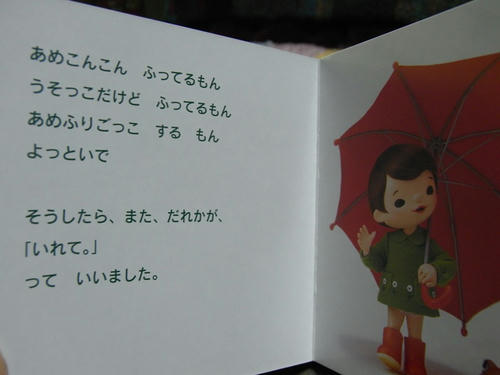 あめこんこん　ふってるもん
うそっこだけど　ふってるもん
あめふりごっこ　する　もん
よっといで
そうしたら、また、だれかが、
「いれて。」
って　いいました。